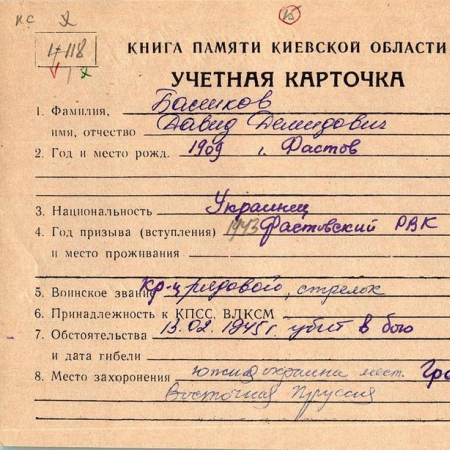 КС 2
15
4-118
1 2
КНИГА ПАМЯТИ КИЕВСКОЙ ОБЛАСТИ
УЧЕТНАЯ КАРТОЧКА
1. Фамилия, Басиков
имя, отчество Давид Демидович
2. Год и место рожд. 1909 г. Фастов
3. Национальность Украинец
4. Год призыва (вступления) 1943 Фастовский РВК
и место проживания
5. Воинское звание кр-ц рядовой, стрелок
6. Принадлежность к КПСС, ВЛКСМ
7. Обстоятельства 13.02.1945г. убит в бою
и дата гибели
8. Место захоронения южная окраина мест. Гро
Восточная Пруссия